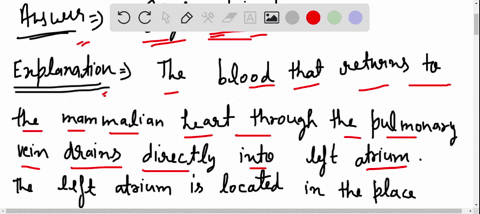 Answer ⇒
Explanation ⇒ The blood that returns to
the mammalian heart through the pulmonary
vein drains directly into left atrium.
The left atrium is located in the place